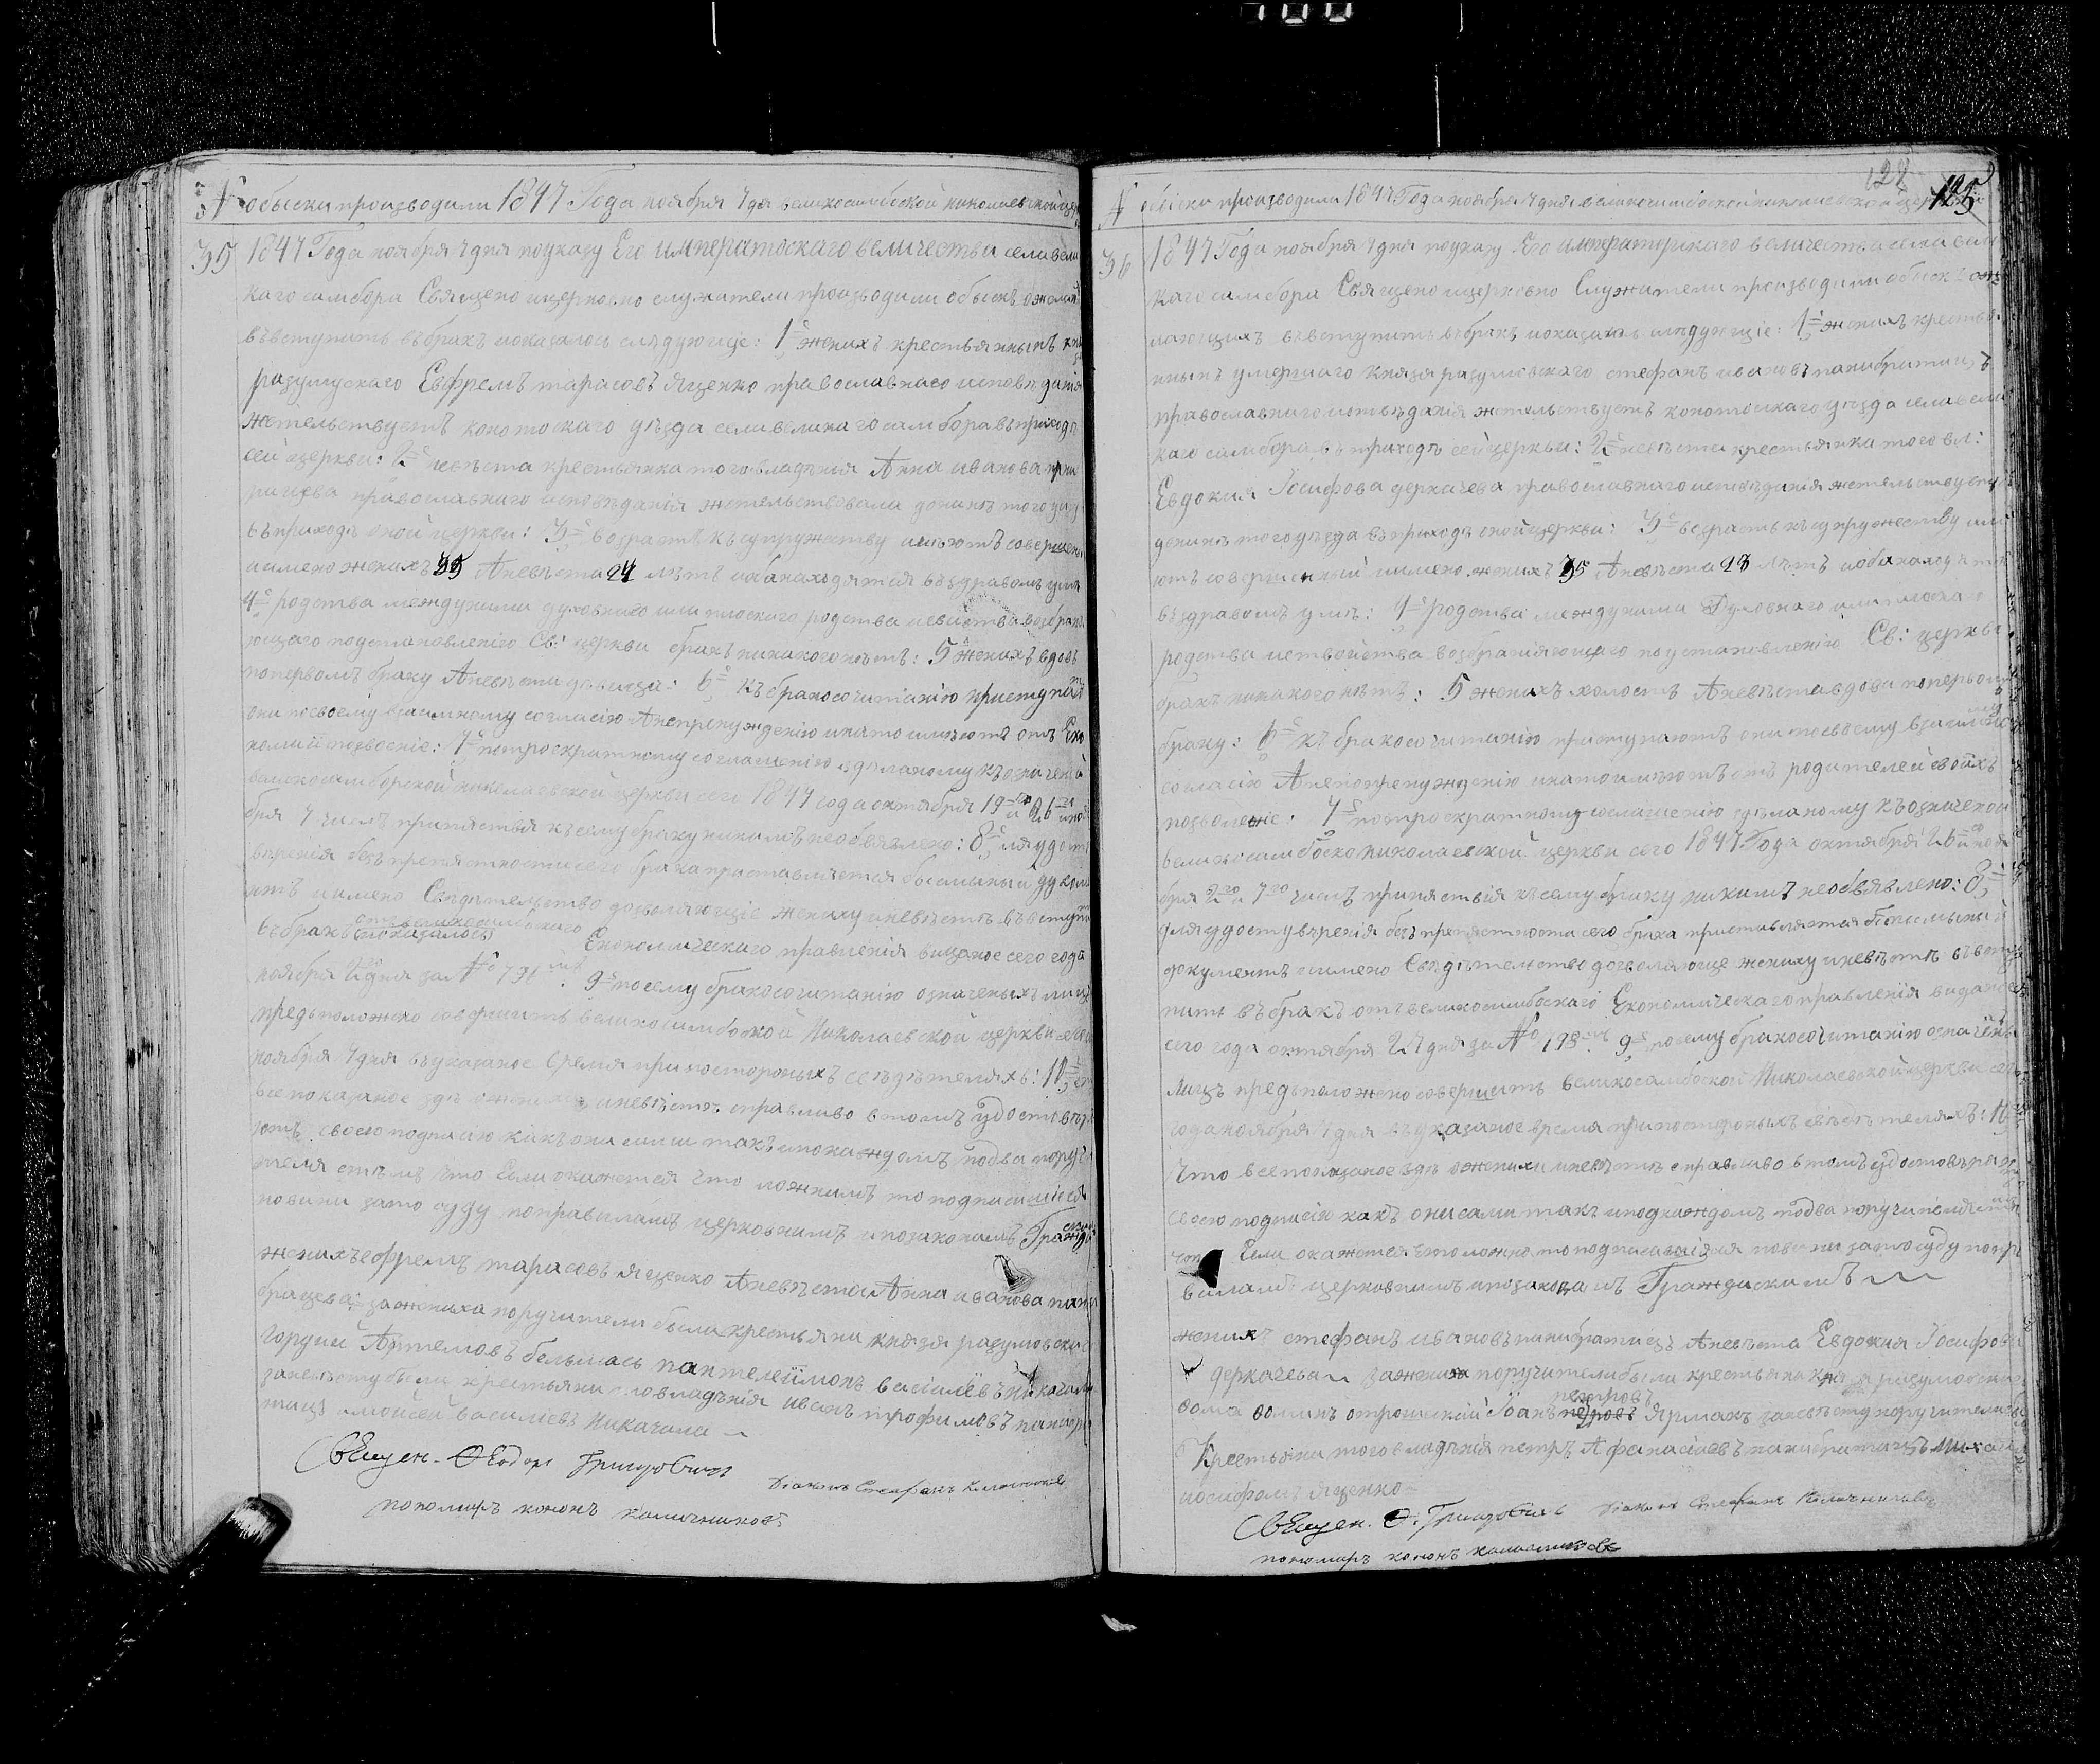 № обыски производили 1847 Года ноября 7 дня великосамбоской николаевской
35 1847 Года ноября 7 дня поуказу Его императоскаго величества села вели
каго самбора Священо ицерковно служители производили обыск о желаю
въвступить въбракъ показалось слѣдующіе: 1е женихъ крестьянинъ кня
разумускаго Евфремъ тарасовъ Яценко православнаго исповѣданія
жетельствуетъ конотоскаго уѣзда села великаго самбора въприходѣ
сей церкви: 2е невѣста крестьянка того владѣнія Анна иванова
православнаго исповѣданія жетельствовала донинѣ того уѣз
въприходѣ оной церкви: 3е возрастъ къ супружеству имѣютъ совершен
иимено женихъ 35 Аневѣста 24 лѣтъ иоба находятся въздравомъ умѣ
4е родства междуними духовнаго или плоскаго родства исвойства возбраня
ющаго поустановленію Св: церкви бракъ никакого нѣтъ: 5 женихъ вдовъ
поперволъ браку Аневѣста дѣвица: 6е къ бракосочитанію приступаю
они посвоему взаимному согласію Анепрепужденію инато имѣютъ отъ Еко
позволеніе: 7е потроекратному согласшенію здѣланому къозначеной
великосамборской николаевской церкви сего 1847 года октября 19 и 26 и ноя
бря 7 числъ припяствія къ сему браку никимъ необъявлено: 8е для удост
вѣренія безъ препятностисего брака приставляется бысьминый докум
ятъ иимено Свѣдительство дозволяющіе жениху иневѣстѣ въвступи
въбракъ отъ великосамбоскаго Економическаго правленія виданое сего года
ноября 2 дня за № 791 9е посему бракосочитанію означеныхъ лицъ
предположено совершить великосамбоской Николаевской церкви
ноября 7 дня въуказаное время припостороныхъ свѣдѣтеляхъ: 10е
все показаное здѣ ожених иневѣстѣ справливо втомъ удостовѣря
ютъ своею подписію какъ они сами такъ ипокаждомъ подва поручи
теля стѣмъ что Если окажется что ложнимъ то подписавшіеся
повини зато суду поправиламъ церковнимъ ипозаконамъ Гражд
женихъ ефремъ тарасовъ яценко Аневѣста Анна иванова пани
брацева зажениха поручители были крестьяни князя разумовска
гордий Артемовъ бельмась пантелеймонъ василіевъ никачала
заневѣсту были крестьяни того владѣнія иванъ трофимовъ панибра
тицъ имойсей василіевъ Никачала
Священ. Ѳеодоръ Григоровичъ діаконъ Стефанъ
пономаръ кононъ
128
125
№ обыски производили 1847 Года ноября 7 дня великосамбоской николаевской церкви
36 1847 Года ноября 7 дня поуказу Его императорскаго величества села вели
каго самбора Священо ицерковно Служители производили обыск о же
лающихъ въвступить въбракъ показалось слѣдующіе: 1е женихъ крестья
нинъ умершаго князя разумовскаго стефанъ ивановъ панибратицъ
православнаго исповѣданія жетельствуетъ конотоскаго уѣзда села вели
каго самбора въ приходѣ сей церкви: 2е невѣста крестьянка того вл:
Евдокия Іосифова деркачева православнаго исповѣданія жетельствуе
донинѣ того уѣзда въприходѣ оной церкви: 3е возрастъ къ супружеству имѣ
ютъ совершенный иимено женихъ 35 Аневѣста 28 лѣтъ иоба находятся
въздравомъ умѣ: 4е родства междуними Духовнаго или плоскаго
родства исвойства возбраняющаго поустановленію Св: церкви
бракъ никакого нѣтъ: 5 женихъ холостъ Аневѣста вдова поперьвому
браку: 6е къ бракосочитанію приступаютъ они посвоему взаимному
согласію Анепопрепуждению инато имѣютъ отъ родителей своихъ
позволеніе: 7е потроекратному согласшенію здѣланому къозначеной
великосамбоско николаевской церкви сего 1847 Года октября 26 и ноя
бря 2 и 7 числъ припяствія къ сему браку никимъ необъявлено: 8е
для удоствувѣренія безъ препятности сего брака приставляется бысьминый
документъ иимено Свѣдѣтельство дозволяюще жениху иневѣстѣ въвступ
пить въбракъ отъ великосамбоскаго Економическаго правленія виданое
сего года октября 27 дня за № 798 9е посему бракосочитанію означень
лицъ предположено совершить великосамбоской Николаевской церкви сего
года ноября 7 дня въуказаное время припостороныхъ свѣдѣтеляхъ: 10е
Что все показаное здѣ ожених иневѣстѣ справливо втомъ удостовѣряю
своею подписію какъ они сами такъ иподкаждомъ подва поручителя
что Если окажется Что ложно то подписавшіеся повини зато суду попр
виламъ церковнимъ ипозаконамъ Гражданскимъ
женихъ стефанъ ивановъ панибратицъ Аневѣста Евдокия Іосифова
деркачева зажениха поручители были крестьяна кня я разумовска
Ѳома Ѳоминъ отрошский Іоанъ петровъ Ярмакъ заневѣсту поручители бы
Крестьяни того владѣнія петръ Афанасіевъ панибратицъ Миха
иосифовъ яценко
Священ. Ѳ. Григоровичъ діаконъ Стефанъ
пономаръ кононъ